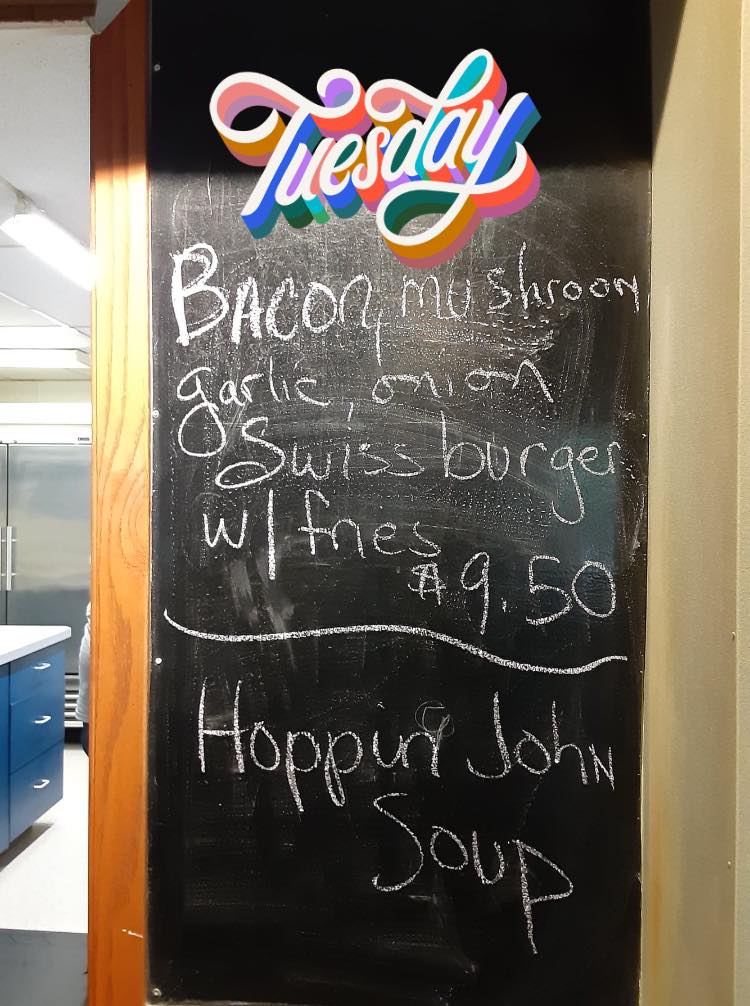 Tuesday
Bacon, mushroom
garlic, onion
Swiss burger
w/ fries
$9.50
Hoppin John
Soup